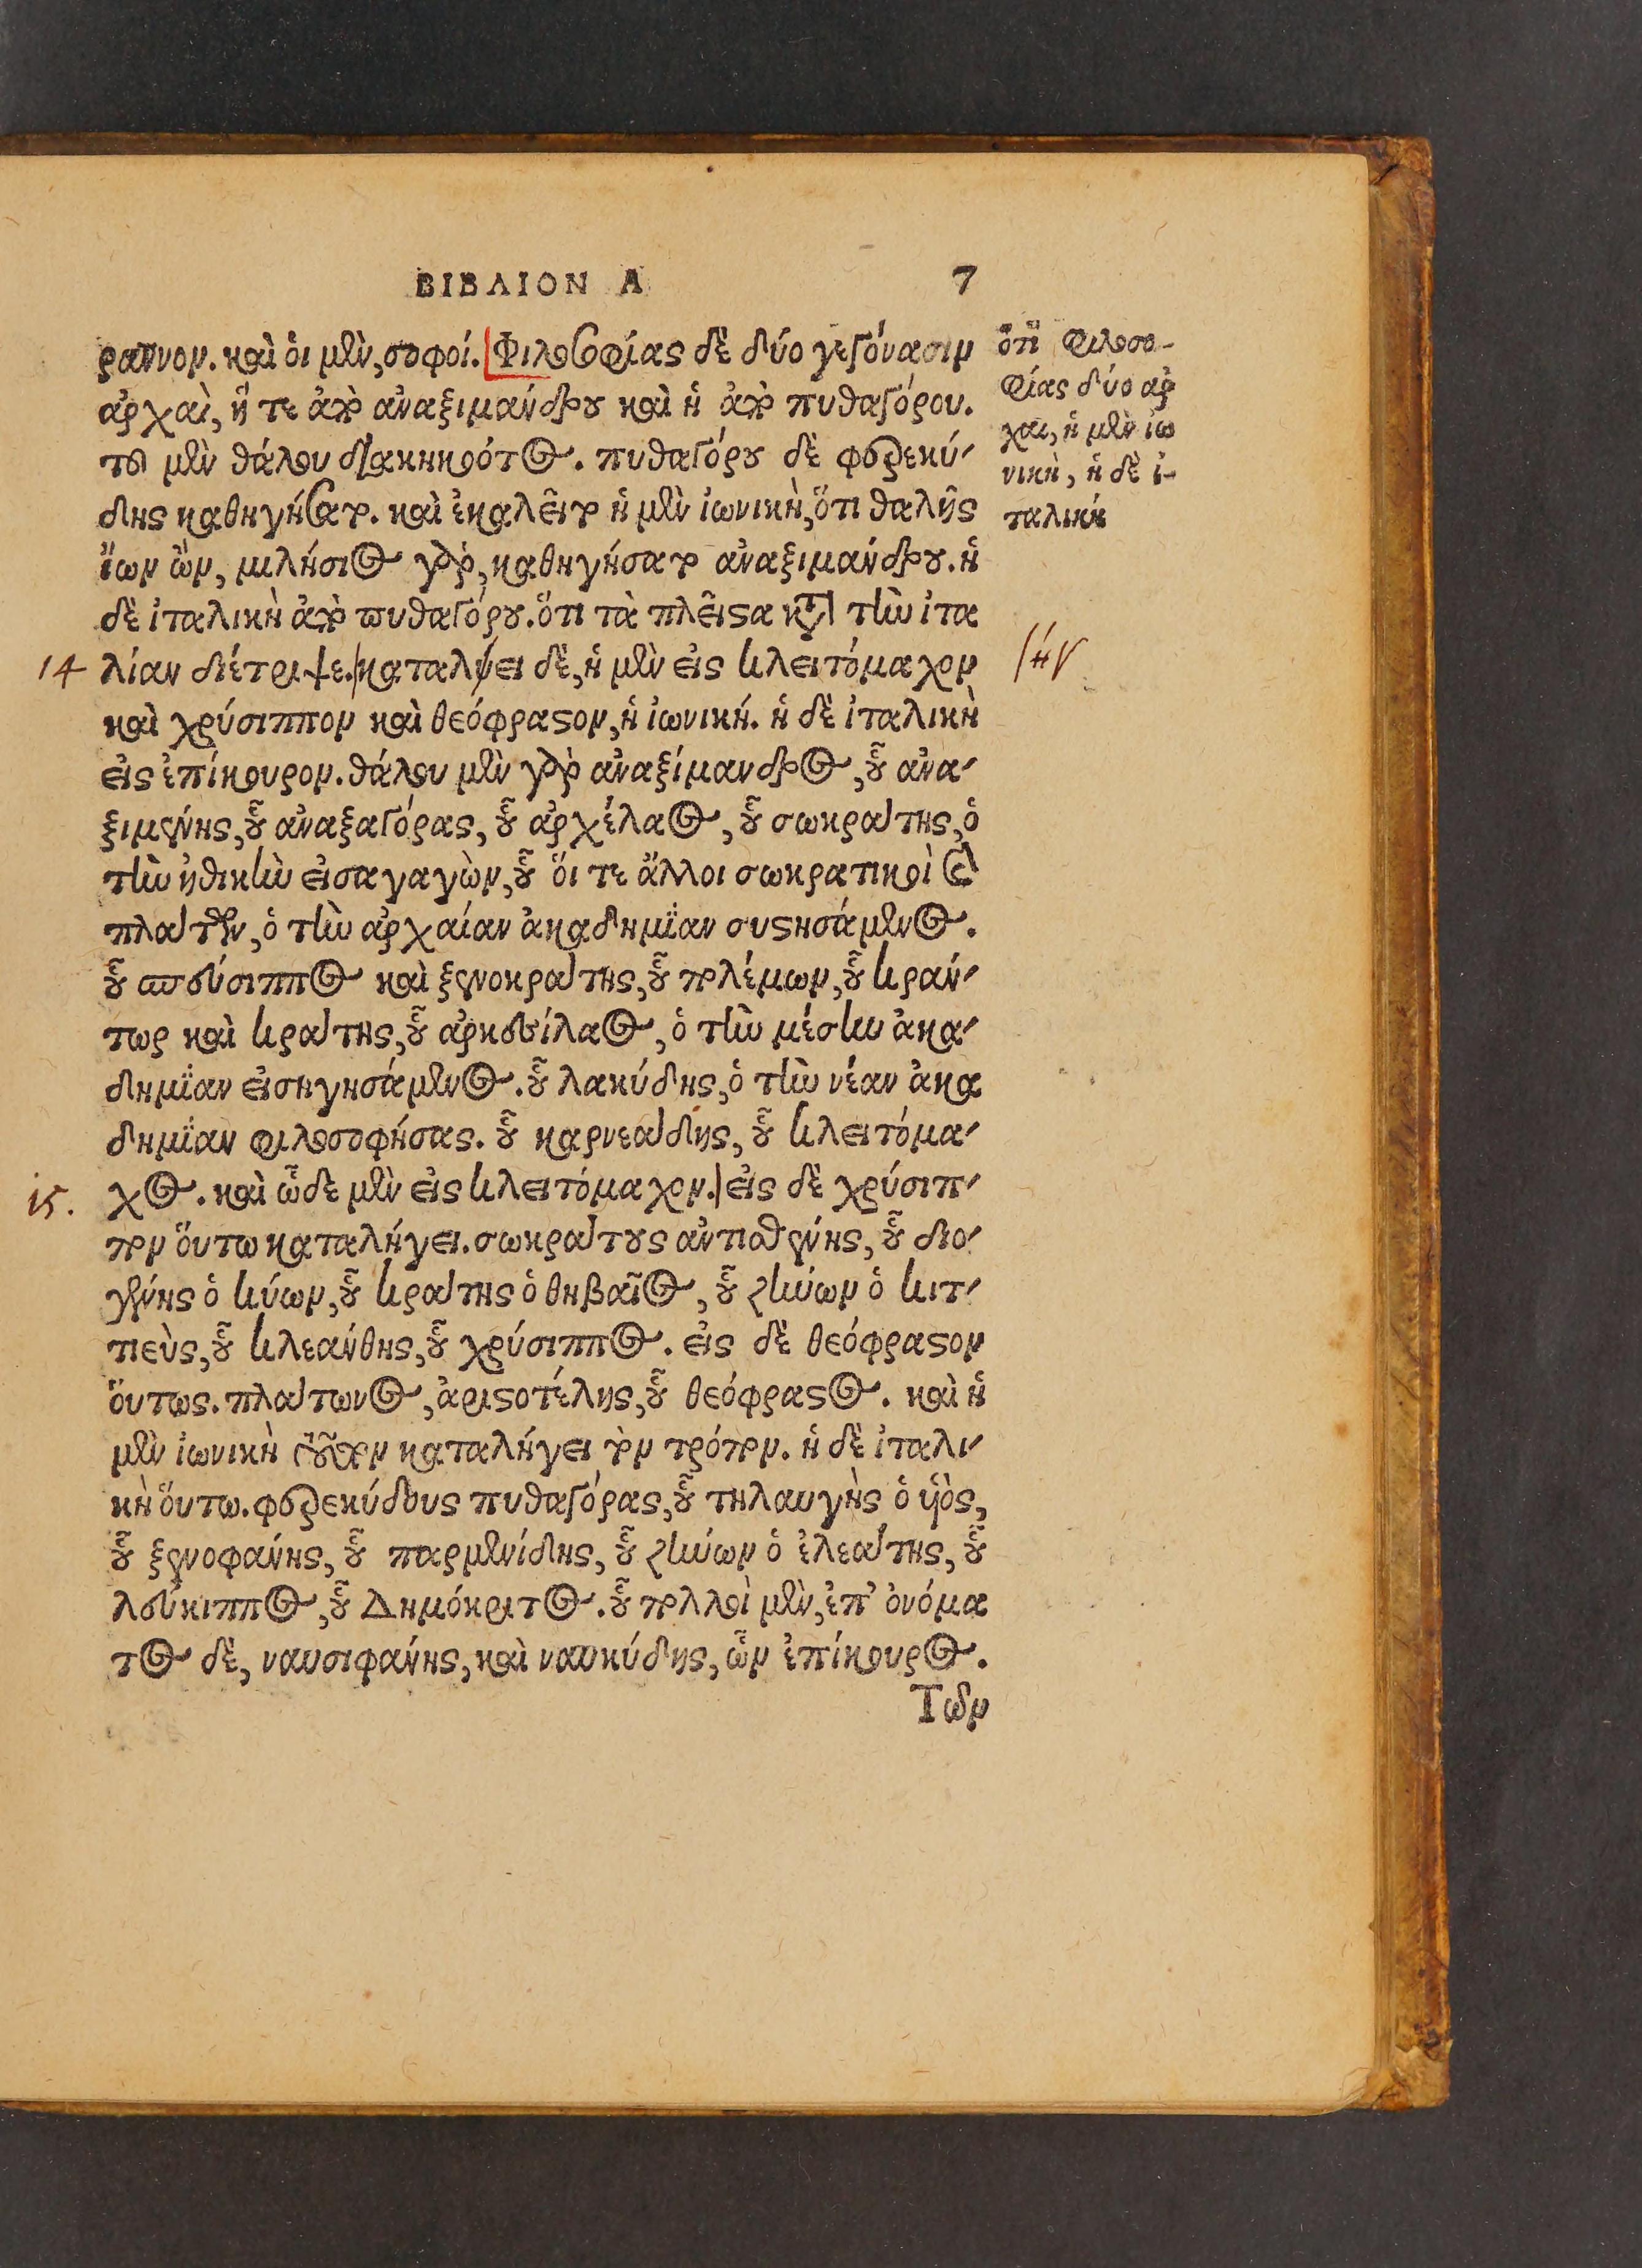 ΒΙΒΛΙΟΝ Α 7
ραννον. καὶ ὁι μὲν, σοφοί. Φιλοσοφίας δὲ δύο γεγόνασιν
ἀρχαὶ, ἥ τε ἀπὸ ἀναξιμάνδρου καὶ ἡ ἀπὸ πυθαγόρου.
τοῦ μὲν θάλου διακηκοότος. πυθαγόρου δὲ φερεκύ-
δης καθηγήσατο. καὶ ἐκαλεῖτο ἡ μὲν ἰωνικὴ, ὅτι θαλῆς
ἴων ὢν, μιλήσιος γὰρ, καθηγήσατο ἀναξιμάνδρου. ἡ
δὲ ἰταλικὴ ἀπὸ πυθαγόρου. ὅτι τὰ πλεῖστα κατὰ τὴν ἰτα
14 λίαν διέτριψε. καταλύει δὲ, ἡ μὲν εἰς κλειτόμαχον
καὶ χρύσιππον καὶ θεόφραστον, ἡ ἰωνική. ἡ δὲ ἰταλικὴ
εἰς ἐπίκουρον. θάλου μὲν γὰρ ἀναξίμανδρος, οὗ ἀνα-
ξιμένης, οὗ ἀναξαγόρας, οὗ ἀρχέλαος, οὗ σωκράτης, ὁ
τὴν ἠθικὴν εἰσαγαγὼν, οὗ ὅι τε ἄλλοι σωκρατικοὶ καὶ
πλάτων, ὁ τὴν ἀρχαίαν ἀκαδημΐαν συστησάμενος.
οὗ σπεύσιππος καὶ ξενοκράτης, οὗ πολέμων, οὗ κράν-
τωρ καὶ κράτης, οὗ ἀρκεσίλαος, ὁ τὴν μέσην ἀκα-
δημΐαν εἰσηγησάμενος. οὗ λακύδης, ὁ τὴν νέαν ἀκα
δημΐαν φιλοσοφήσας. οὗ καρνεάδης, οὗ κλειτόμα-
15. χος. καὶ ὧδε μὲν εἰς κλειτόμαχον. εἰς δὲ χρύσιπ-
πον ὅυτω καταλήγει. σωκράτους ἀντισθένης, οὗ διο-
γένης ὁ κύων, οὗ κράτης ὁ θηβαῖος, οὗ ζήνων ὁ κιτ-
τιεὺς, οὗ κλεάνθης, οὗ χρύσιππος. εἰς δὲ θεόφραστον
ὅυτως. πλάτωνος, ἀριστοτέλης, οὗ θεόφραστος. καὶ ἡ
μὲν ἰωνικὴ τοῦτον καταλήγει τὸν τρόπον. ἡ δὲ ἰταλι-
κὴ ὅυτω. φερεκύδους πυθαγόρας, οὗ τηλαυγὴς ὁ υἱὸς,
οὗ ξενοφάνης, οὗ παρμενίδης, οὗ ζήνων ὁ ἐλεάτης, οὗ
λεύκιππος, οὗ Δημόκριτος. οὗ πολλοὶ μὲν, ἐπ' ὀνόμα
τος δὲ, ναυσιφάνης, καὶ ναυκύδης, ὧν ἐπίκουρος.
Τῶν
ὅτι φιλοσο-
φίας δύο ἀρ
χαι, ἡ μὲν ἰω
νικὴ, ἡ δὲ ἰ-
ταλική
/ήγ